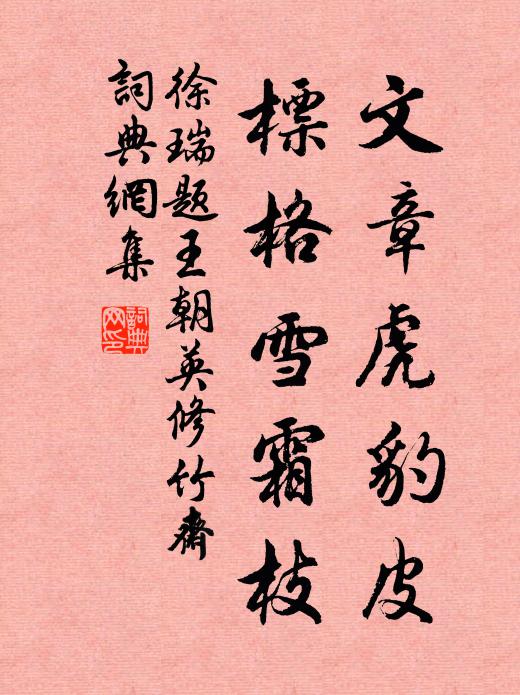 文章虎豹皮
標格雪霜枝
徐瑞題王朝英修竹齋
詞典網集
詞典网印